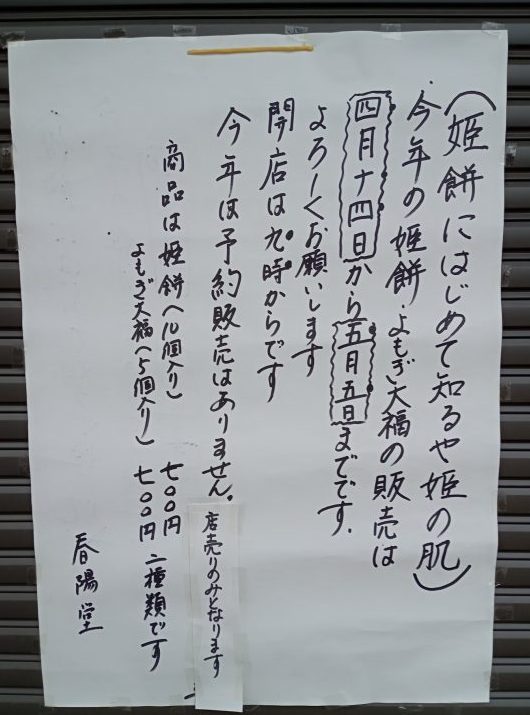 (姫餅にはじめて知るや姫の肌)
今年の姫餅・よもぎ大福の販売は
四月十四日から五月五日までです.
よろしくお願いします
開店は九時からです
今年は予約販売はありません。
店売りのみとなります
商品は姫餅(10個入り) 七〇〇円
よもぎ大福(5個入り) 七〇〇円 二種類です
春陽堂